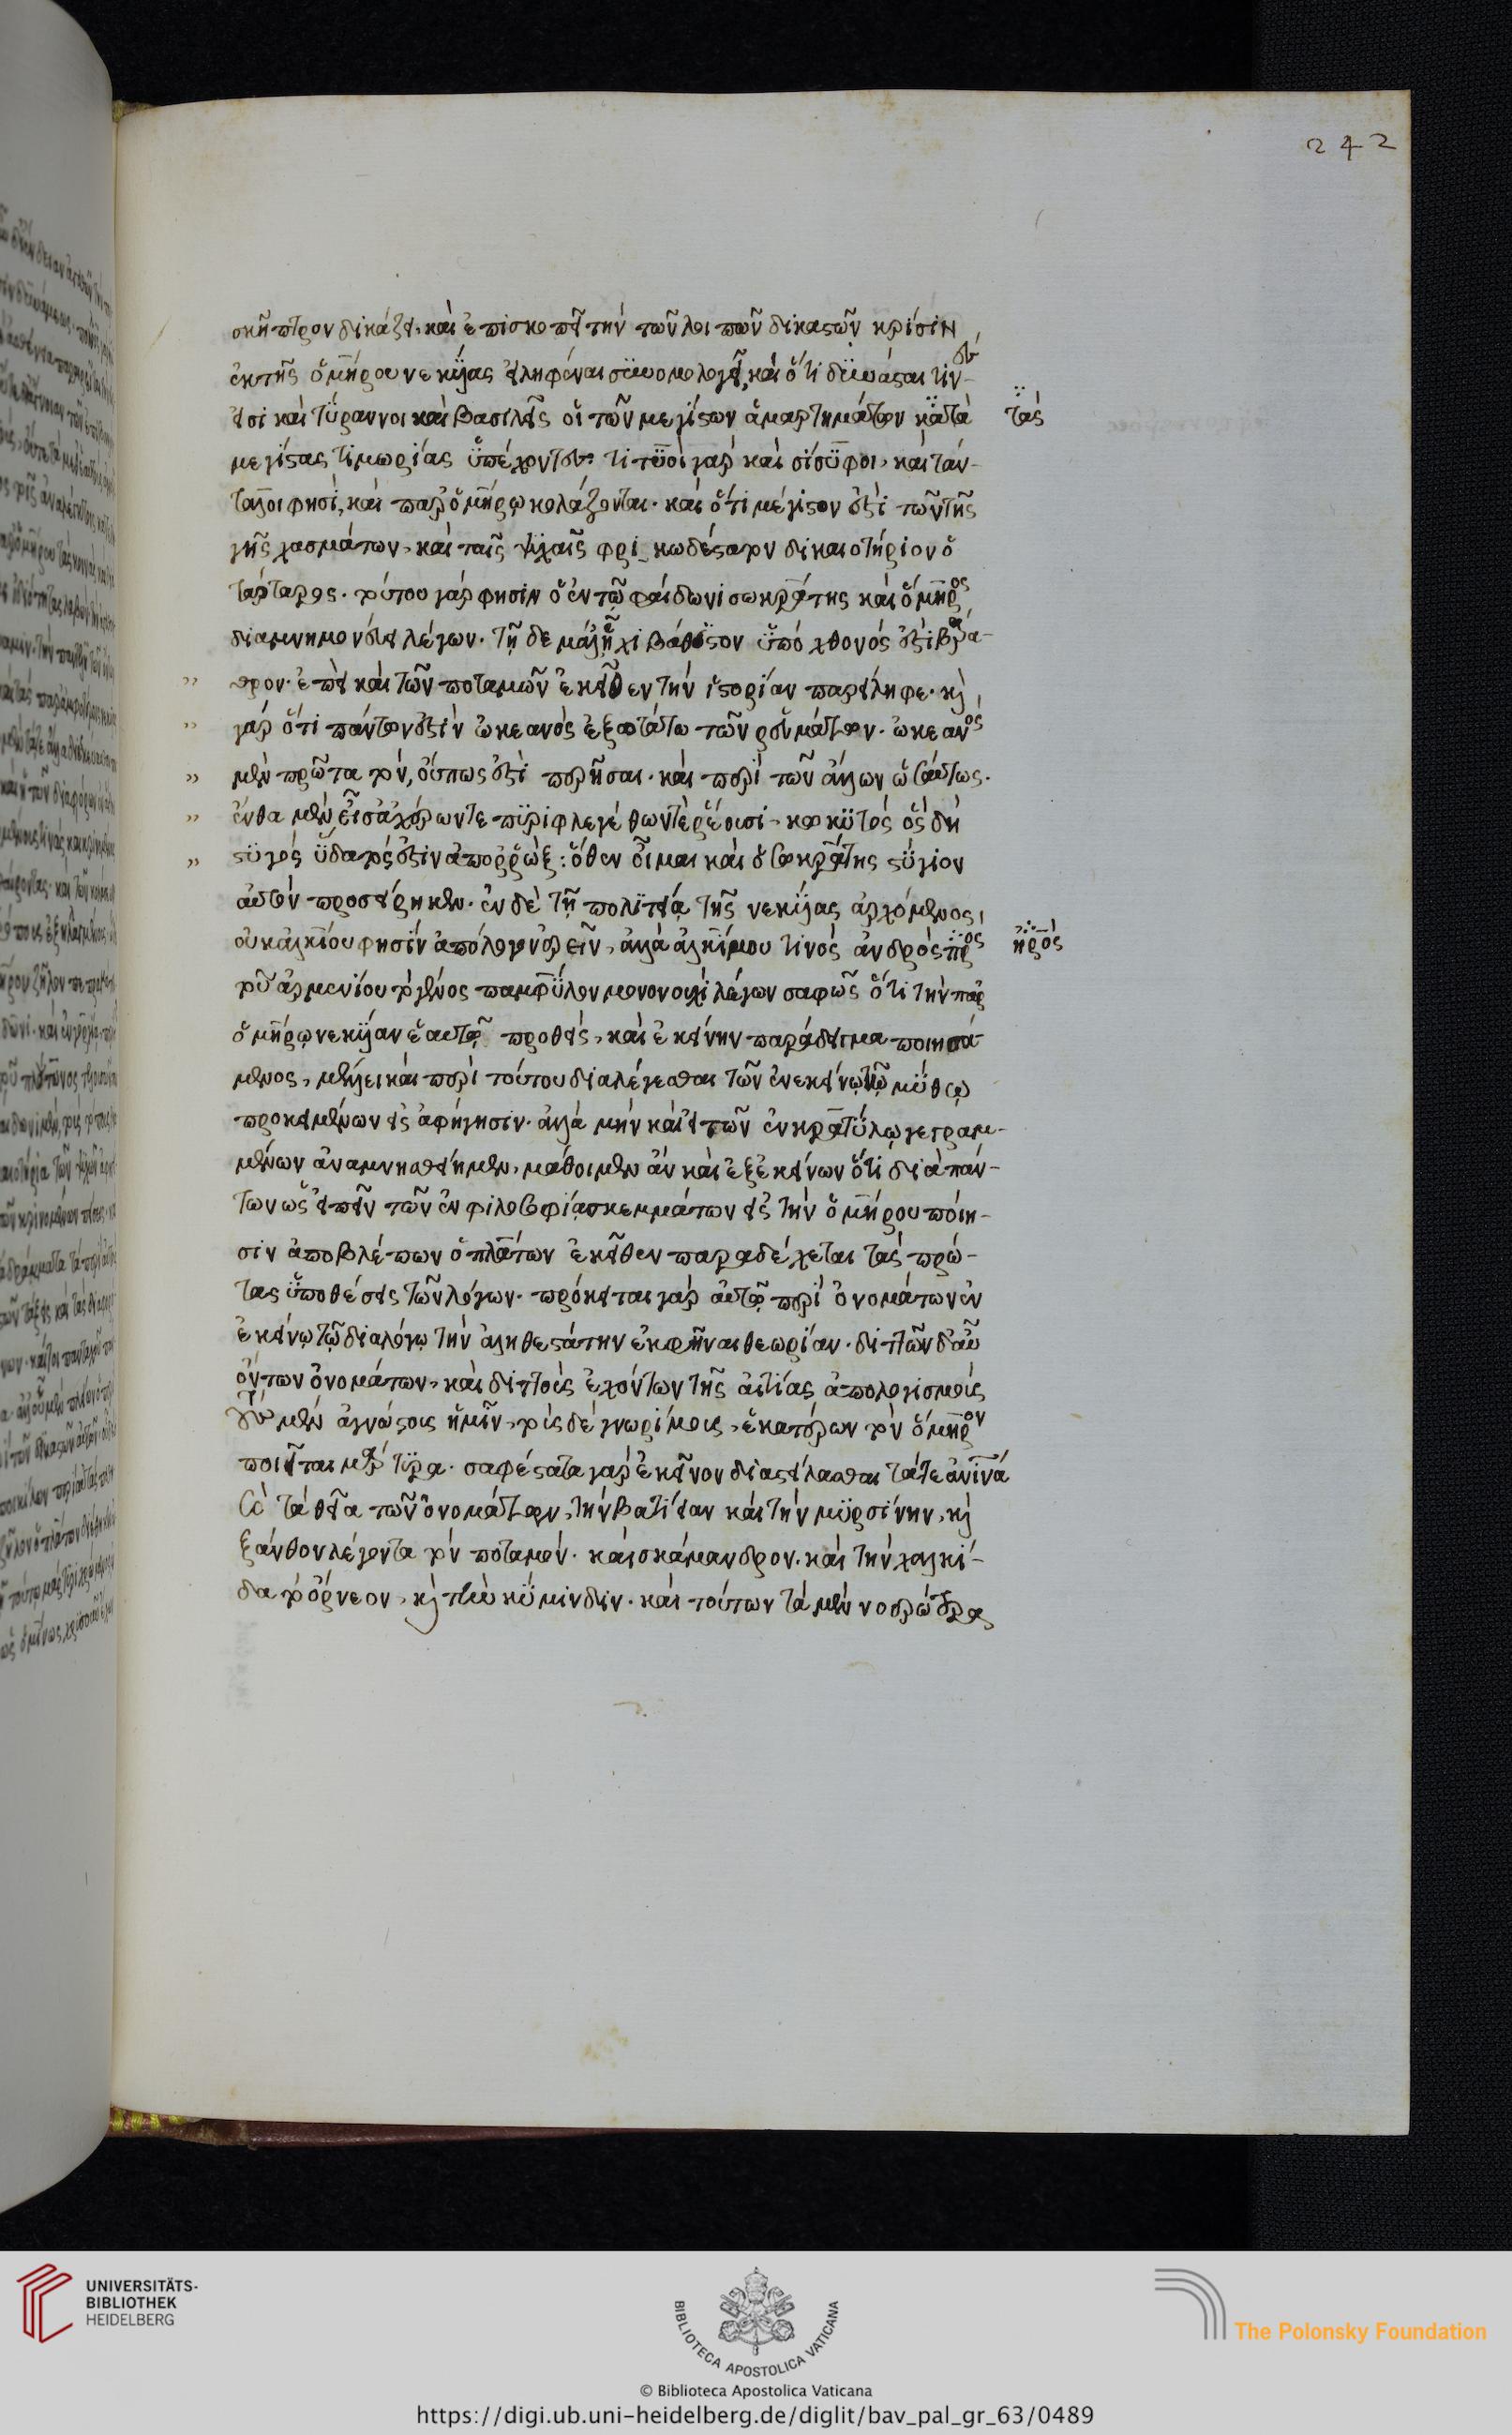 242
σκῆπτρον δικάζει, καὶ ἐπισκοπεῖ τὴν τῶν λοιπῶν δικαστῶν κρίσιν,
ἐκ τῆς ὁμήρου νεκυίας εἰληφέναι συνομολογεῖ, καὶ ὅτι δυνάσται τιν-
εἰσὶ καὶ τύραννοι καὶ βασιλεῖς οἱ τῶν μεγίστων ἁμαρτημάτων κατὰ τὰς
μεγίστας τιμωρίας ὑπέχοντες. τιτυοὶ γὰρ καὶ σίσυφοι, καὶ τάν-
ταλοι φησὶ, καὶ παρ' ὁμήρῳ κολάζονται. καὶ ὅτι μέγιστον ἐστὶ τῶν τῆς
γῆς χασμάτων, καὶ ταῖς ψυχαῖς φρικωδέστατον δικαιοτήριον ὁ
τάρταρος. τούτου γάρ φησιν ὁ ἐν τῷ φαίδωνι σωκράτης καὶ ὅμηρος
διαμνημονεύει λέγων. τῆδε μάλ' ᾗχι βάθιστον ὑπὸ χθονός ἐστι βέρε-
θρον. ἐπεὶ καὶ τῶν ποταμῶν ἐκεῖθεν τὴν ἱστορίαν παρείληφε. καὶ
γὰρ ὅτι πάντων ἐστὶν ὠκεανὸς ἐξωτάτω τῶν ρευμάτων. ὠκεανὸς
μὲν πρῶτα τὸν, ὅσπως ἐστὶ περῆσαι. καὶ περὶ τῶν ἄλλων ὡσαύτως.
ἔνθα μὲν εἰς ἀχέρωντε πυριφλεγέθωντε ῥέουσι, κωκυτός ὃς δὴ
στυγὸς ὕδατός ἐστιν ἀπορρώξ: ὅθεν οἶμαι καὶ ὁ σωκράτης στύγιον
αὐτὸν προσείρηκεν. ἐν δὲ τῇ πολιτείᾳ τῆς νεκυίας ἀρχόμενος,
οὐκ ἀλκίνου φησὶν ἀπόλογον ἐρεῖν, ἀλλὰ ἀλκίμου τινὸς ἀνδρὸς πρὸς ἠρὸς
τοῦ ἀρμενίου τὸ γένος παμφύλου μονονουχὶ λέγων σαφῶς ὅτι τὴν παρ
ὁμήρῳ νεκυίαν ἑαυτῷ προθεὶς, καὶ ἐκείνην παράδειγμα ποιησά
μενος, μέλλει καὶ περὶ τούτου διαλέγεσθαι τῶν ἐν ἐκείνῳ τῷ μύθῳ
προκειμένων εἰς ἀφήγησιν. ἀλλὰ μὴν καὶ εἰ τῶν ἐν κρατύλῳ γεγραμ-
μένων ἀναμνησθείημεν, μάθοιμεν ἂν καὶ ἐξ ἐκείνων ὅτι διὰ πάν-
των ὡς εἰπεῖν τῶν ἐν φιλοσοφίᾳ σκεμμάτων εἰς τὴν ὁμήρου ποίη-
σιν ἀποβλέπων ὁ πλάτων ἐκεῖθεν παραδέχεται τὰς πρώ-
τας ὑποθέσεις τῶν λόγων. πρόκειται γὰρ αὐτῷ περὶ ὀνομάτων ἐν
ἐκείνῳ τῷ διαλόγῳ τὴν ἀληθεστάτην ἐκφῆναι θεωρίαν. διττῶν δ' αὖ
ὄντων ὀνομάτων, καὶ διττοὺς ἐχόντων τῆς αἰτίας ἀπολογισμοὺς
τοὺς μὲν ἀγνώστοις ἡμῖν, τοὺς δὲ γνωρίμοις, ἑκατέρων τὸν ὅμηρον
ποιεῖται μάρτυρα. σαφέστατα γὰρ ἐκεῖνον διαστείλασθαι τά τε ἀνινά
σὸ τὰ θεῖα τῶν ὀνομάτων, τὴν βατίειαν καὶ τὴν μυρσίνην, καὶ
ξάνθον λέγοντα τὸν ποταμόν. καὶ σκάμανδρον. καὶ τὴν χαλκί-
δα τὸ ὄρνεον, καὶ τὴν κύμινδιν. καὶ τούτων τὰ μὲν νοερώτερα
UNIVERSITÄTS-
BIBLIOTHEK
HEIDELBERG
BIBLIOTECA APOSTOLICA VATICANA
The Polonsky Foundation
© Biblioteca Apostolica Vaticana
https://digi.ub.uni-heidelberg.de/diglit/bav_pal_gr_63/0489